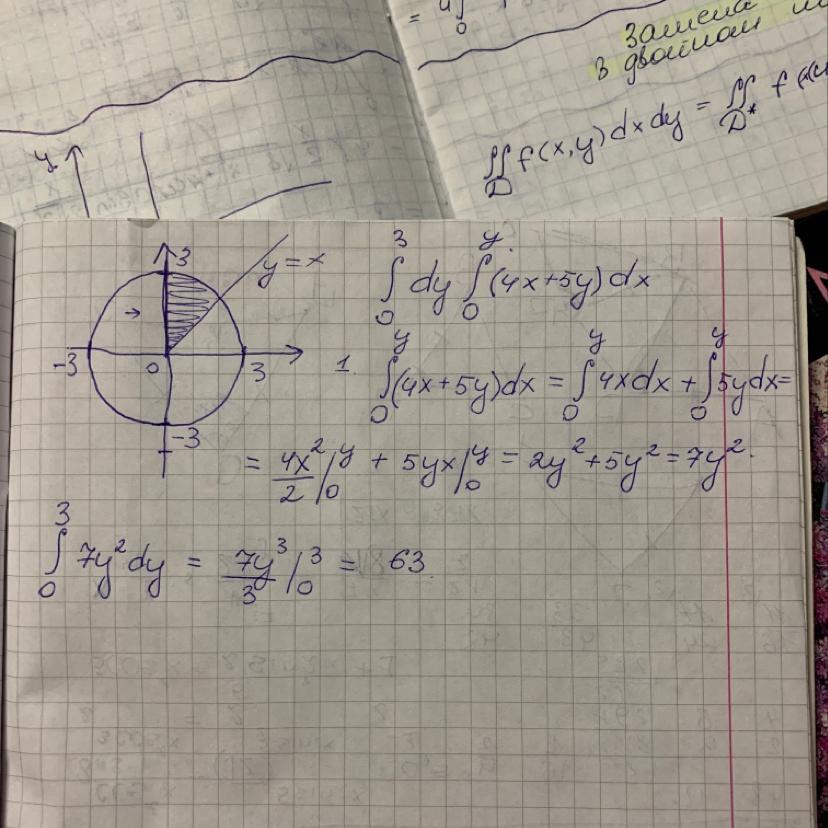 = 4∫₀
Замена
в двойном
∬_D f(x,y) dx dy = ∬_D* f(x(u
y
3
y = x
-3
0
3
-3
∫₀³ dy ∫₀^y (4x+5y) dx
1. ∫₀^y (4x+5y) dx = ∫₀^y 4x dx + ∫₀^y 5y dx =
= 4x²/2 |₀^y + 5yx |₀^y = 2y² + 5y² = 7y².
∫₀³ 7y² dy = 7y³/3 |₀³ = 63